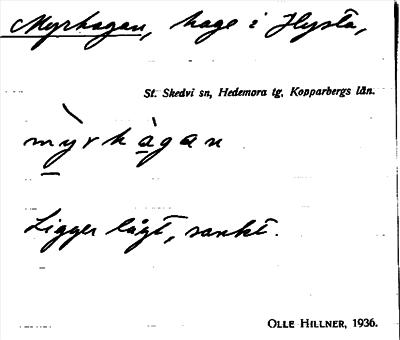 Myrhagan, hage i Hysta,
St. Skedvi sn, Hedemora tg, Kopparbergs län.
mỳrhàgan
Ligger lågt, sankt.
OLLE HILLNER, 1936.